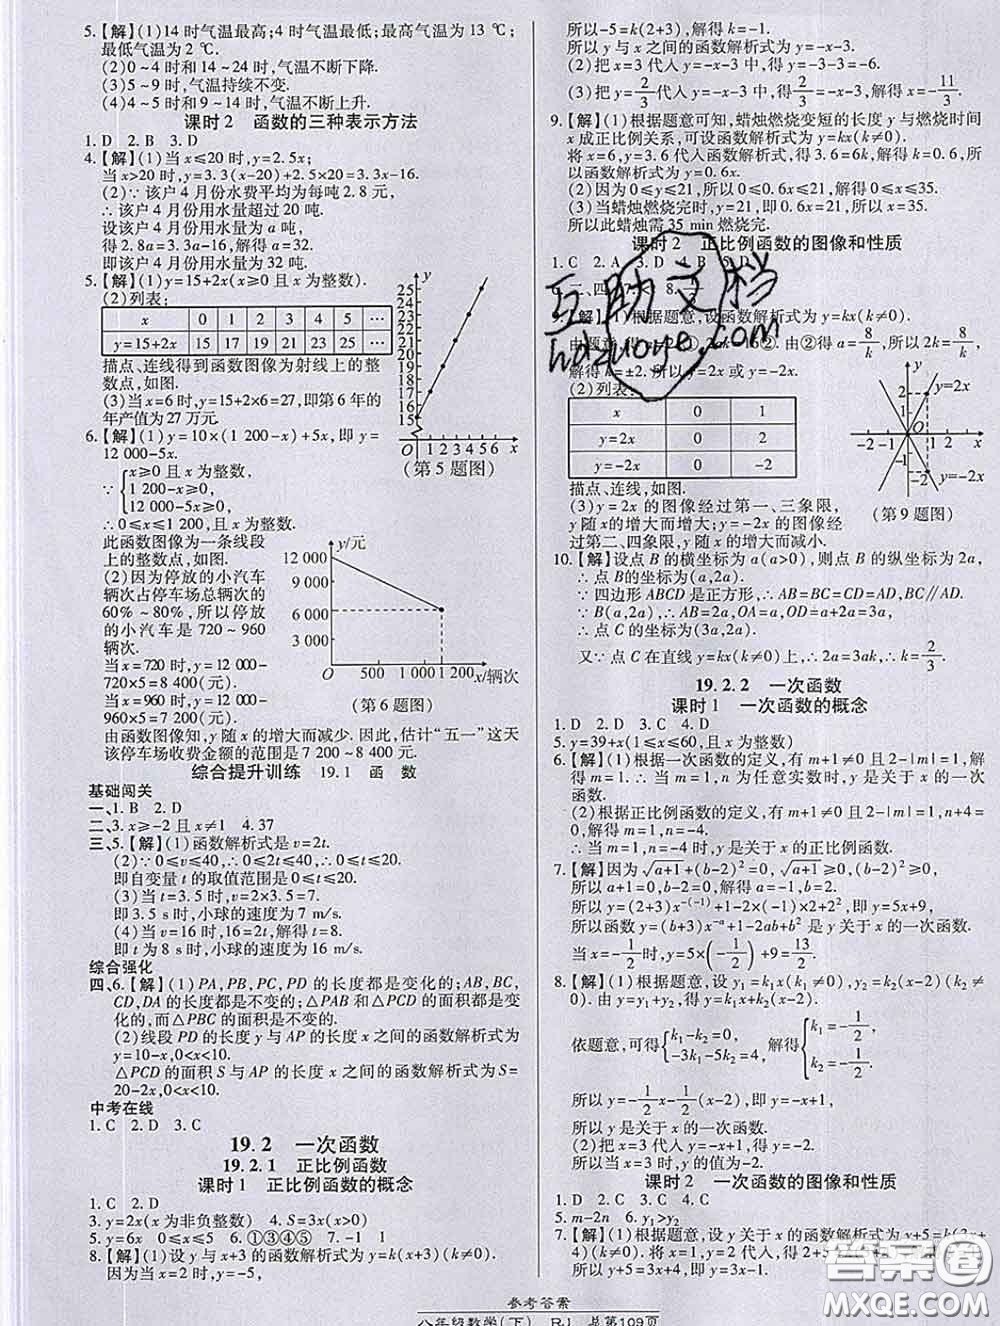 5.【解】(1)14时气温最高;4时气温最低;最高气温为13 ℃;
最低气温为2 ℃.
(2)0~4时和14~24时,气温不断下降.
(3)5~9时,气温持续不变.
(4)4~5时和9~14时,气温不断上升.
课时2 函数的三种表示方法
1. D 2. B 3. D
4.【解】(1)当x≤20时,y=2.5x;
当x>20时,y=3.3(x-20)+2.5×20=3.3x-16.
(2)∵该户4月份水费平均为每吨2.8元,
∴该户4月份用水量超过20吨.
设该户4月份用水量为a吨,
得2.8a=3.3a-16,解得a=32.
即该户4月份用水量为32吨.
5.【解】(1)y=15+2x(x≥0且x为整数).
(2)列表:
x 0 1 2 3 4 5 …
y=15+2x 15 17 19 21 23 25 …
描点、连线得到函数图像为射线上的整
数点,如图.
(3)当x=6时,y=15+2×6=27,即第6年的
年产值为27万元.
y
25
24
23
22
21
20
19
18
17
16
15
O 1 2 3 4 5 6 x
(第5题图)
6.【解】(1)y=10×(1 200-x)+5x,即y=
12 000-5x.
∵{x≥0且x为整数,
1 200-x≥0,
12 000-5x≥0,
∴0≤x≤1 200,且x为整数.
此函数图像为一条线段
上的整数点,如图.
(2)因为停放的小汽车
辆次占停车场总辆次的
60%~80%,所以停放
的小汽车是720~960
辆次.
当x=720时,y=12 000-
720×5=8 400(元).
当x=960时,y=12 000-
960×5=7 200(元).
y/元
12 000
9 000
6 000
3 000
O 500 1 000 1 200 x/辆次
(第6题图)
由函数图像知,y随x的增大而减少.因此,估计“五一”这天
该停车场收费金额的范围是7 200~8 400元.
综合提升训练 19.1 函 数
基础闯关
一、1. B 2. D
二、3. x≥-2且x≠1 4. 37
三、5.【解】(1)函数解析式是v=2t.
(2)∵0≤v≤40,∴0≤2t≤40,∴0≤t≤20.
即自变量t的取值范围是0≤t≤20.
(3)当t=3.5时,v=2×3.5=7.
即3.5 s时,小球的速度为7 m/s.
(4)当v=16时,16=2t,解得t=8.
即t为8 s时,小球的速度为16 m/s.
综合强化
四、6.【解】(1)PA,PB,PC,PD的长度都是变化的;AB,BC,
CD,DA的长度都是不变的;△PAB和△PCD的面积都是变
化的,而△PBC的面积是不变的.
(2)线段PD的长度y与AP的长度x之间的函数解析式为
y=10-x,0<x<10.
△PCD的面积S与AP的长度x之间的函数解析式为S=
20-2x,0<x<10.
中考在线
1. C 2. D 3. C
19.2 一次函数
19.2.1 正比例函数
课时1 正比例函数的概念
1. C 2. D
3. y=2x(x为非负整数) 4. S=3x(x>0)
5. y=6x 0≤x≤5 6. ①③④⑤ 7. -1 1
8.【解】(1)设y与x+3的函数解析式为y=k(x+3)(k≠0).
因为当x=2时,y=-5,
所以-5=k(2+3),解得k=-1.
所以y与x之间的函数解析式为y=-x-3.
(2)把x=3代入y=-x-3中,得y=-3-3=-6.
(3)把y=2/3代入y=-x-3中,得2/3=-x-3,解得x=-11/3.
9.【解】(1)根据题意可知,蜡烛燃烧变短的长度y与燃烧时间
x成正比例关系,可设函数解析式为y=kx(k≠0).
将x=6,y=3.6代入函数解析式,得3.6=6k,解得k=0.6,所
以函数解析式为y=0.6x.
(2)因为0≤y≤21,所以0≤0.6x≤21,所以0≤x≤35.
(3)当蜡烛燃烧完时,y=21,即0.6x=21,所以x=35.
所以此蜡烛需35 min燃烧完.
课时2 正比例函数的图像和性质
1. C 2. A 3. D 4. B 5. D
9.【解】(1)根据题意,设函数解析式为y=kx(k≠0).
解得k=±2.所以y=2x或y=-2x.
(2)列表:
x 0 1
y=2x 0 2
y=-2x 0 -2
描点、连线,如图.
(3)y=2x的图像经过第一、三象限,
y随x的增大而增大;y=-2x的图像经过
第二、四象限,y随x的增大而减小.
y
2
1
-2 -1 O 1 2 x
-1
-2
y=2x
y=-2x
(第9题图)
10.【解】设点B的横坐标为a(a>0),则点B的纵坐标为2a,
∴点B的坐标为(a,2a).
∵四边形ABCD是正方形,∴AB=BC=CD=AD,BC∥AD.
∵B(a,2a),∴AB=2a,OA=a,OD=a+2a=3a,
∴点C的坐标为(3a,2a).
又∵点C在直线y=kx(k≠0)上,∴2a=3ak,∴k=2/3.
19.2.2 一次函数
课时1 一次函数的概念
1. D 2. D 3. C 4. D
5. y=39+x(1≤x≤60,且x为整数)
6.【解】(1)根据一次函数的定义,有m+1≠0且2-|m|=1,
解得m=1.∴m=1,n为任意实数时,y是关于x的一次
函数.
(2)根据正比例函数的定义,有m+1≠0且2-|m|=1,n+4=
0,解得m=1,n=-4.
∴当m=1,n=-4时,y是关于x的正比例函数.
7.【解】因为√(a+1)+(b-2)²=0,√(a+1)≥0,(b-2)²≥0,
所以a+1=0,b-2=0,解得a=-1,b=2.
所以y=(2+3)x^-(-1)+1-2×(-1)×2+2²,即y=5x+9,
所以函数y=(b+3)x^-a+1-2ab+b²是y关于x的一次函数.
当x=-1/2时,y=5×(-1/2)+9=13/2.
8.【解】(1)根据题意,设y₁=k₁x(k₁≠0),y₂=k₂(x-2)(k₂≠
0).由y=y₁+y₂,得y=k₁x+k₂(x-2).
依题意,可得{k₁-k₂=0, -3k₁-5k₂=4,解得{k₁=-1/2, k₂=-1/2.
所以y=-1/2x-1/2(x-2),即y=-x+1.
所以y是关于x的一次函数.
(2)把x=3代入y=-x+1,得y=-2.
所以当x=3时,y的值为-2.
课时2 一次函数的图像和性质
1. D 2. B 3. C 4. C
5. m-2n 6. y₁>y₂
7.【解】(1)根据题意,设y关于x的函数解析式为y+5=k(3x+
4)(k≠0).将x=1,y=2代入,得2+5=
所以y+5=3x+4,即y=3x-1.
互助文档
hdzuoye.com
答案圈
参考答案
八年级数学(下) RJ 总第109页